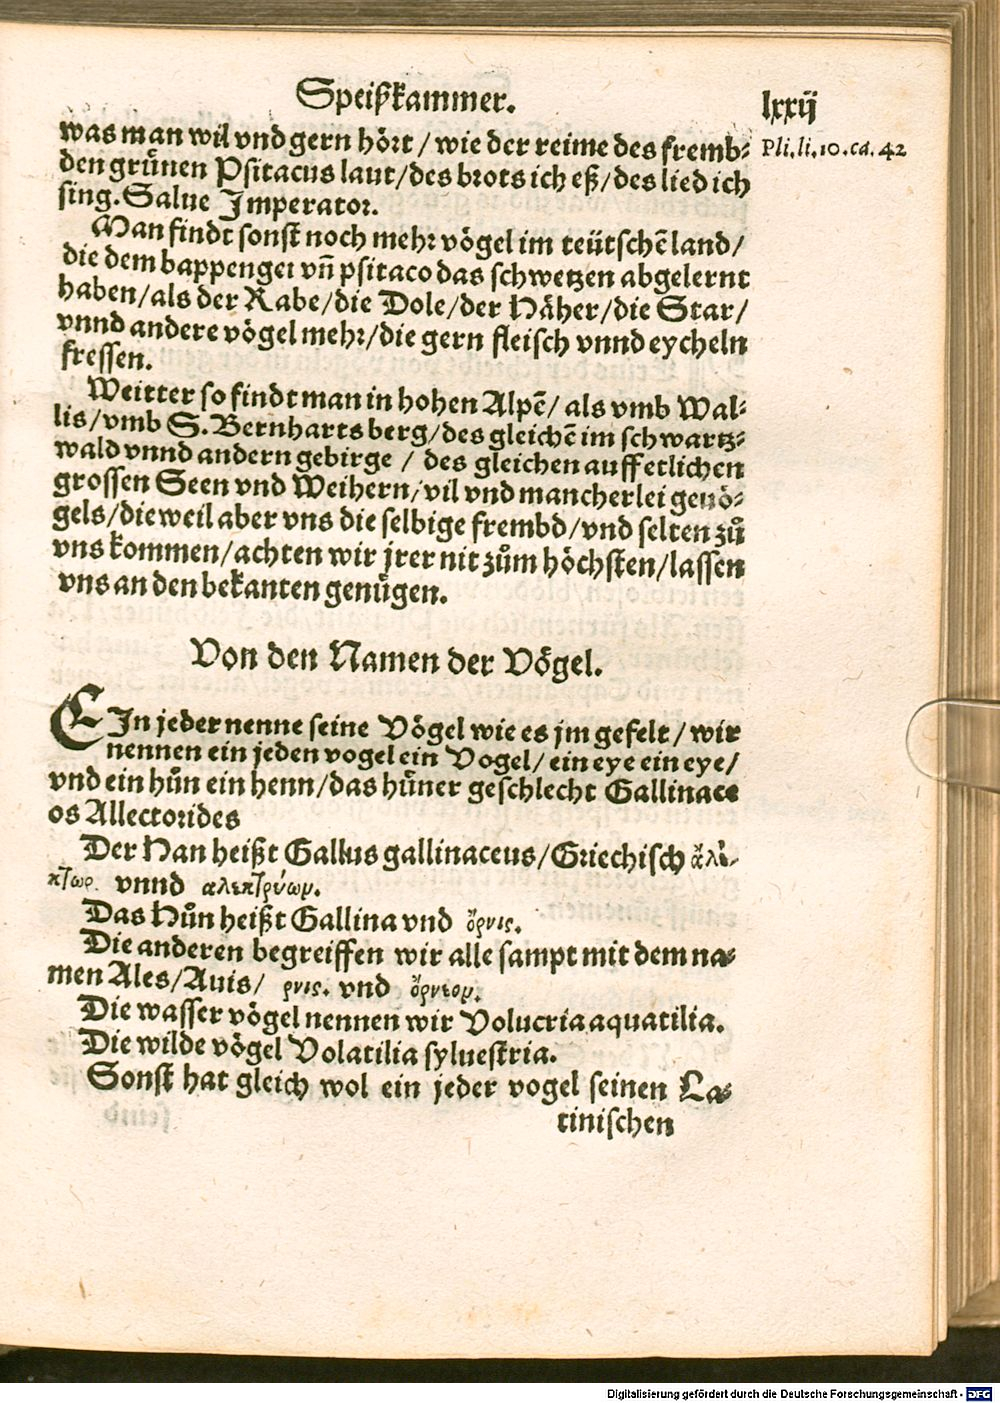 Speißkammer.
lxxij
was man wil vnd gern hört / wie der reime des fremb⸗
Pli. li. 10. ca. 42
den grünen Psitacus laut/des brots ich eß/des lied ich
sing. Salue Imperator.
Man findt sonst noch mehr vögel im teütschē land/
die dem bappengei vn̄ psitaco das schwetzen abgelernt
haben/als der Rabe/die Dole/der Häher/die Star/
vnnd andere vögel mehr/die gern fleisch vnnd eycheln
fressen.
Weitter so findt man in hohen Alpē/ als vmb Wal⸗
lis/vmb S. Bernharts berg/des gleichē im schwartz⸗
wald vnnd andern gebirge / des gleichen auff etlichen
grossen Seen vnd Weihern/vil vnd mancherlei geuö⸗
gels/dieweil aber vns die selbige frembd/vnd selten zů
vns kommen/achten wir jrer nit zům höchsten/lassen
vns an den bekanten genügen.
Von den Namen der Vögel.
EIn jeder nenne seine Vögel wie es jm gefelt / wir
nennen ein jeden vogel ein Vogel/ ein eye ein eye/
vnd ein hůn ein henn/das hüner geschlecht Gallinace
os Allectorides
Der Han heißt Gallus gallinaceus/Griechisch ἀλέ-
κτωρ. vnnd αλεκτρύωμ.
Das Hůn heißt Gallina vnd ὄρνις.
Die anderen begreiffen wir alle sampt mit dem na⸗
men Ales/Auis/ ρνις. vnd ὄρνεομ.
Die wasser vögel nennen wir Volucria aquatilia.
Die wilde vögel Volatilia syluestria.
Sonst hat gleich wol ein jeder vogel seinen La⸗
tinischen
Digitalisierung gefördert durch die Deutsche Forschungsgemeinschaft - DFG